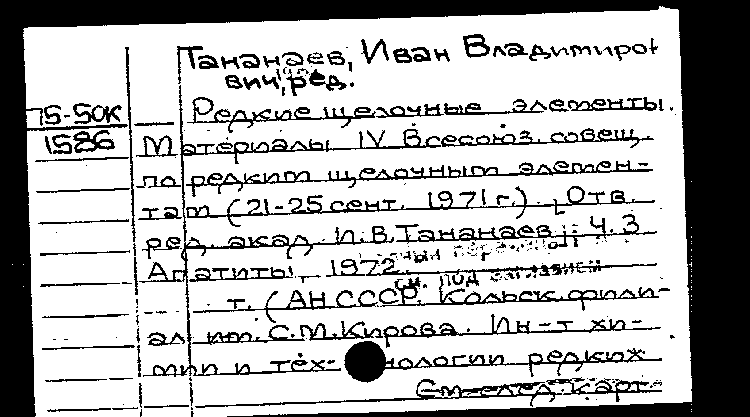 Тананаев, Иван Владимиро
вич, ред.
75-50К
1586
Редкие щелочные элементы.
Материалы IV Всесоюз. совещ.
по редким щелочным элемен-
там (21-25 сент. 1971 г.). [Отв.
ред. акад. И.В. Тананаев]. Ч. 3
Апатиты, 1972.
см. под заглавием
т. (АН СССР. Кольск. фили-
ал им. С.М. Кирова. Ин-т хи-
мии и тех-нологии редких
См. след. карт.